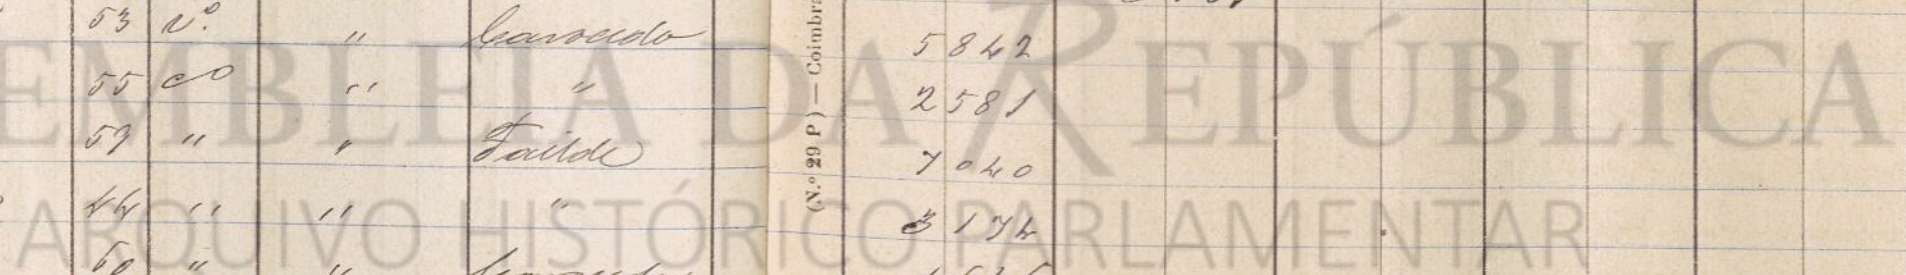 53 v.º " Carocedo 5842
55 cº " " 2581
57 " " Failde 7040
44 " " " 3174
60 " "
(N.º 29 P) — Coimbra
EMBLEIA DA REPÚBLICA
ARQUIVO HISTÓRICO PARLAMENTAR